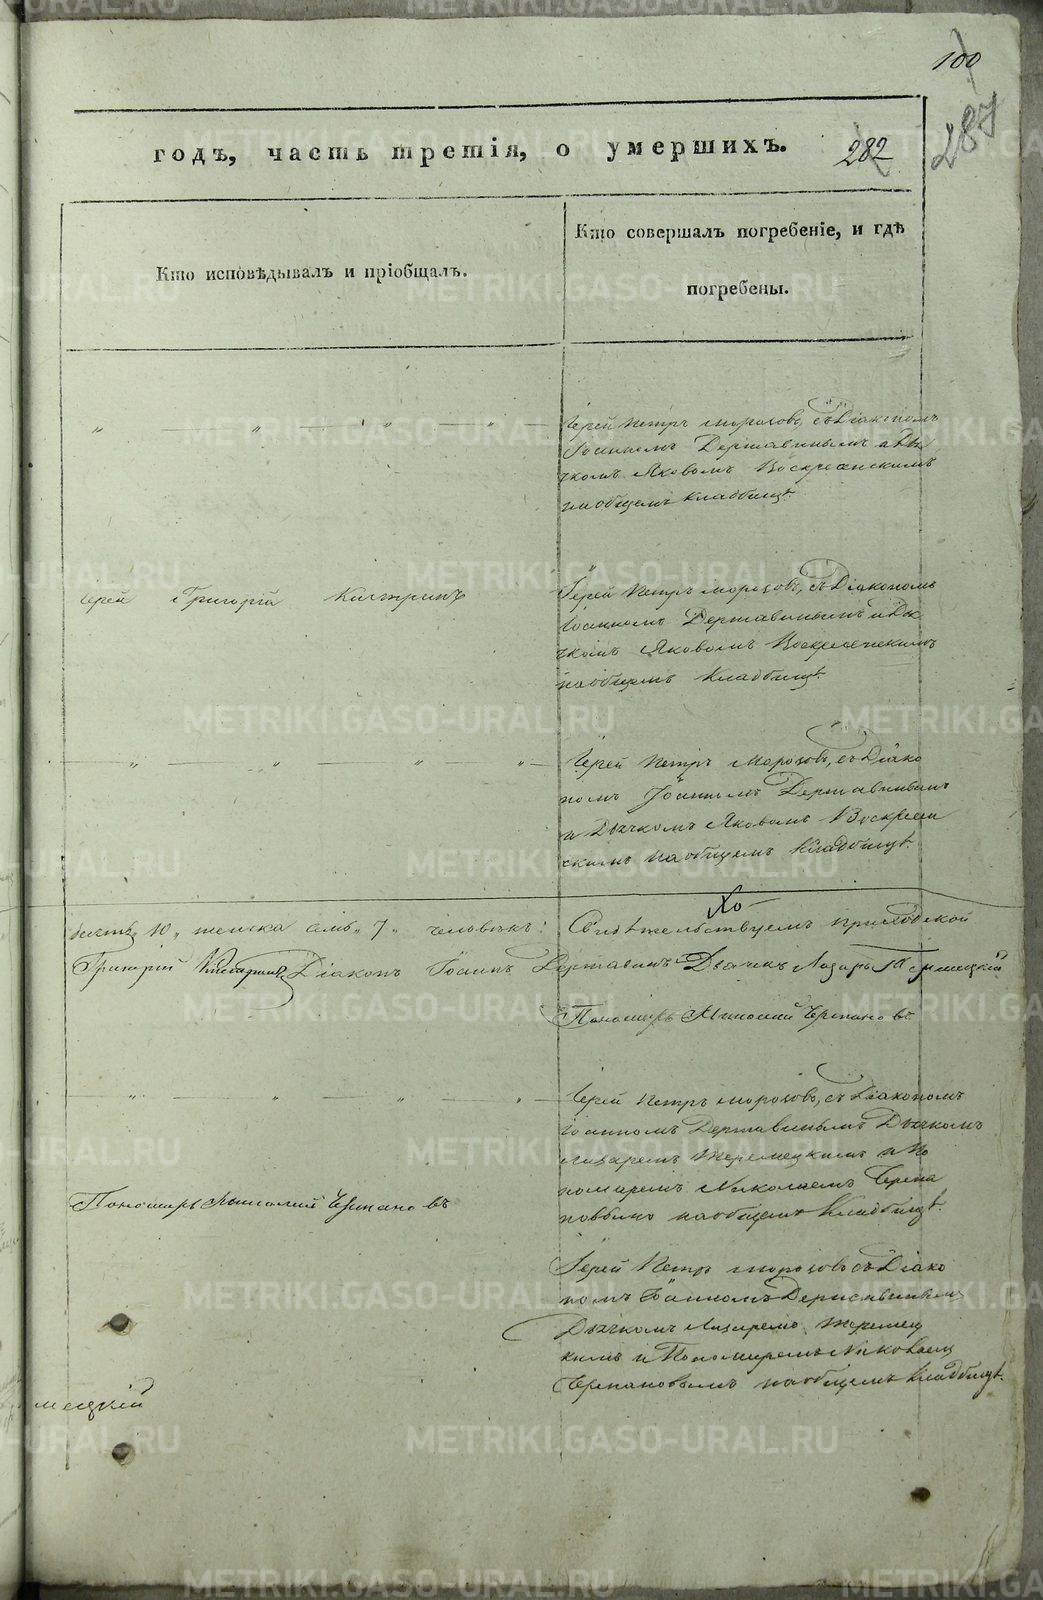 100
287
годъ, часть третія, о умершихъ. 282
Кто исповѣдывалъ и пріобщалъ.
Кто совершалъ погребеніе, и гдѣ
погребены.
Іерей Петръ Морозовъ, съ Діакономъ
Іоанномъ Державинымъ и Дья
чкомъ Яковомъ Воскресенскимъ
на общемъ кладбищѣ.
Іерей Григорій
Іерей Петръ Морозовъ, съ Діакономъ
Іоанномъ Державинымъ и Дья
чкомъ Яковомъ Воскресенскимъ
на общемъ кладбищѣ.
Іерей Петръ Морозовъ, съ Діако
номъ Іоанномъ Державинымъ
и Дьячкомъ Яковомъ Воскресен
скимъ на общемъ кладбищѣ.
10 женска 7 человѣкъ: Свидѣтельствуемъ приходской
Григорій Діаконъ Іоаннъ Державинъ Дьячекъ Лазарь
Пономарь Черпановъ
Іерей Петръ Морозовъ, съ Діакономъ
Іоанномъ Державинымъ Дьячкомъ
Лазаремъ и По
номаремъ Николаемъ Черпа
новымъ на общемъ кладбищѣ.
Пономарь Черпановъ
Іерей Петръ Морозовъ съ Діако
номъ Іоанномъ Державинымъ
Дьячкомъ Лазаремъ
кимъ и Пономаремъ Николаемъ
Черпановымъ на общемъ кладбищѣ.
мецкій
METRIKI.GASO-URAL.RU